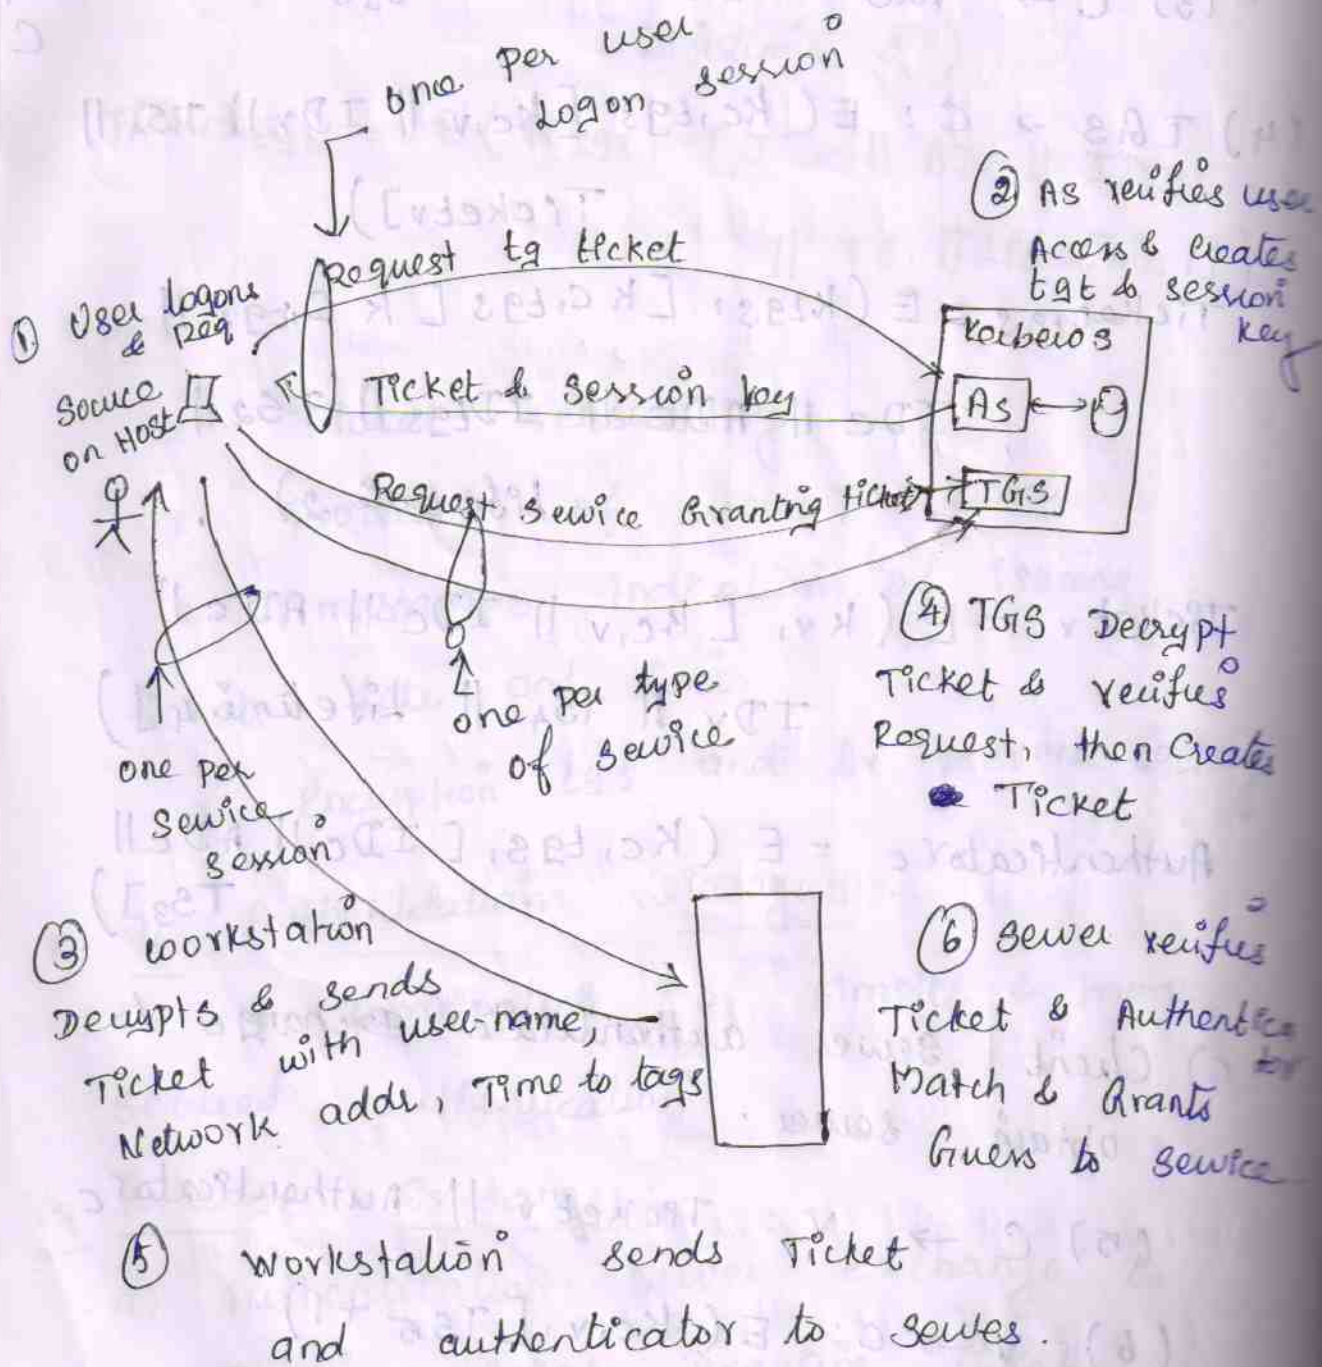 once per user
Logon session
② As verifies user
Access & creates
tgt & session
key
① User logons
& Req
Source
on Host
Request tg ticket
Ticket & Session key
Kerberos
As
Request Service Granting ticket
TGS
④ TGS Decrypt
Ticket & verifies
Request, then Creates
Ticket
one per type
of service
one per
Service
session
③ workstation
Decrypts & sends
Ticket with user-name,
Network addr, Time to tags
⑥ Server verifies
Ticket & Authentica
tor
Match & Grants
to service
⑤ workstation sends Ticket
and authenticator to serves.